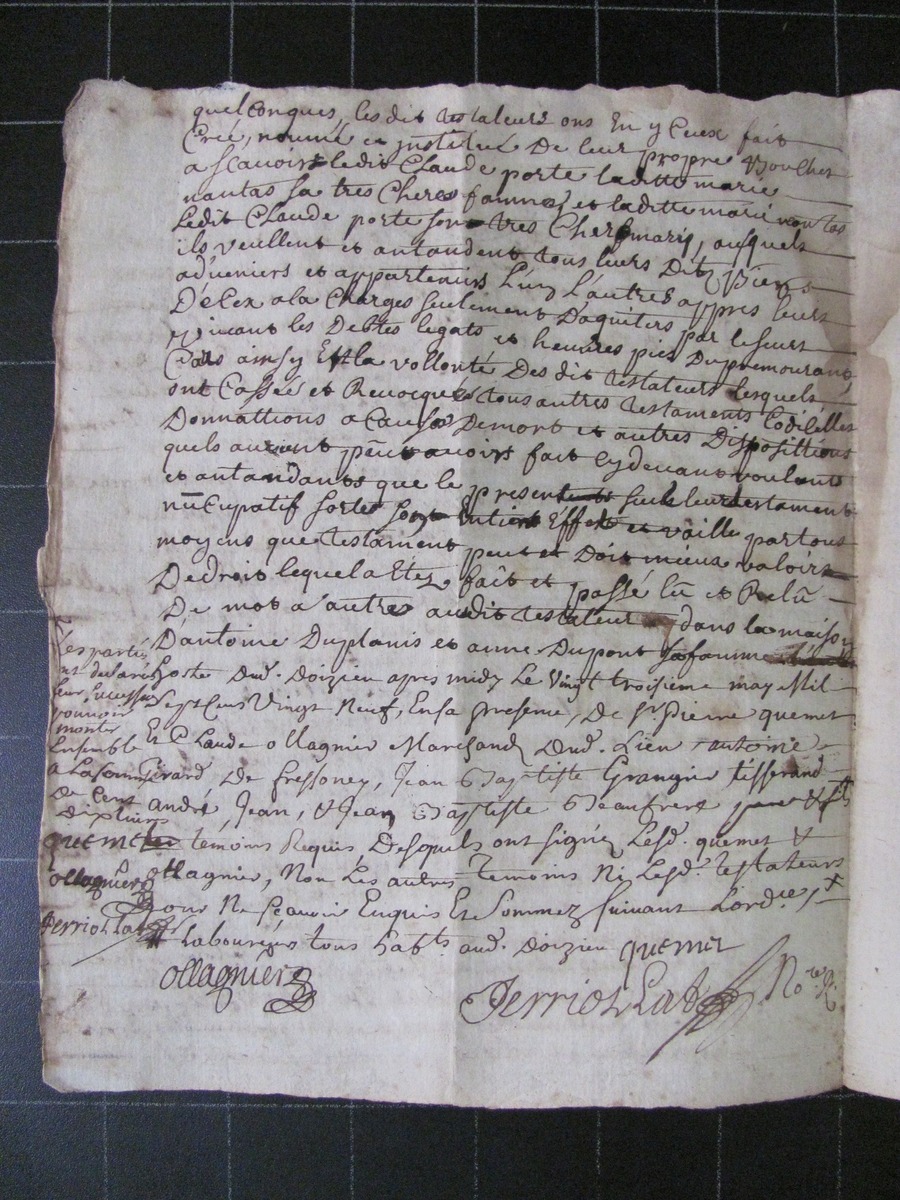 quelconques, les dit testateurs ons En y Ceux fait
Creé, nommé et institüé De leur propre Bouches
a scavoir ledit Claude porte laditte marie
nantas sa tres Cheres famme, et laditte marie nantas
Ledit Claude porte son tres Cher mary, ausquels
ils veullent et antandent tous leurs Dits Biens
advenirs et appartenirs L'un L'autres appres leurs
Décex a la Charges seulement Daquiters par le seurs
vivant les Debtes legats et heuvres pies Du premourant
Cars ainsy Est la vollonté Des dit testateurs lesquels
ont Cassée et Revocqués tous autres testaments Codicelles
Donnattions a Causes Demort et autres Dispositions
quels auroient peut avoirs fait cydevant voulants
et antandants que le present soit leur testament
nuncupatif sortes Entiers Effet et vaille partous
moyens que testament peut et Doit mieux valoirs
De droit lequel a Etez fait et passé lû et Relû
De mot a autres audit testateur dans la maison
D'antoine Duplanis et anne Dupont sa famme
hoste Dud. Doizieu apres midy Le Vingt troisieme may Mil
Sept Cens Vingt Neuf, En sa presence, De Sr. Pierre quemet
Et Claude ollagnier Marchands Dud. Lieu antoine
Girard De fressoney, Jean Baptiste Grangier tisserand
andré, Jean, & Jean Baptiste Beaufrere
temoins Requis Desquels ont signé Lesd. quemet &
ollagnier, Non Les autres Temoins Ni Lesd. testateurs
pour Ne scavoir Enquis Et Sommez suivant Lord.ce
Laboureurs tous habts. aud. doizieu quemet
ollagnier
Perriollat No.re R.
Les parties
ont declaré
leur succession
pouvoir
monter
Ensemble
a La somme
De Cent
dix livres
quemet
ollagnier
Perriollat